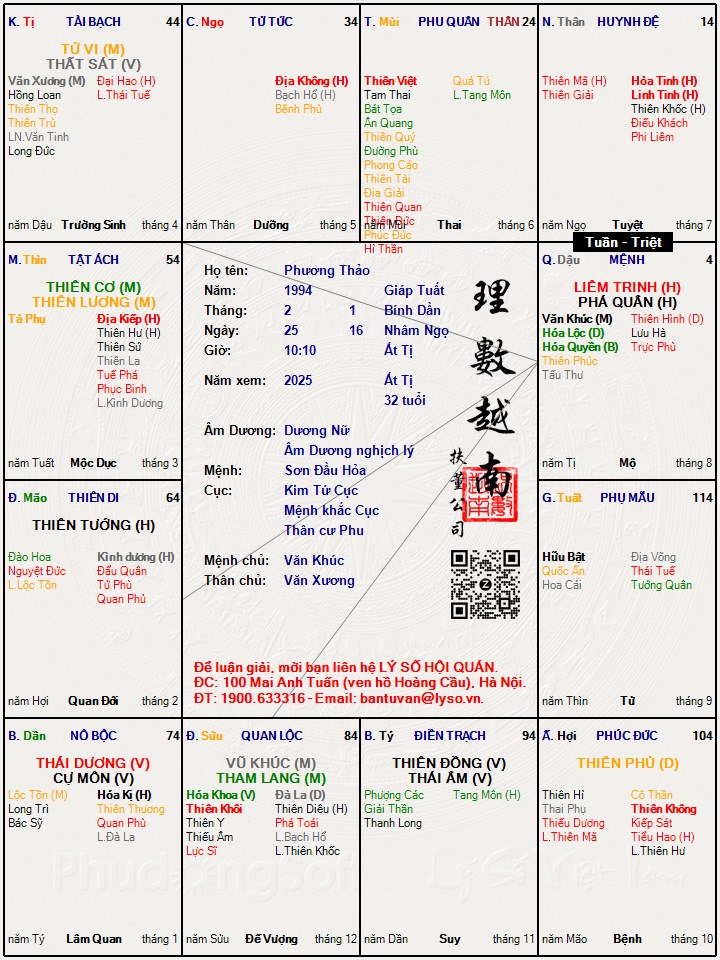 K. Tị TÀI BẠCH 44
TỬ VI (M)
THẤT SÁT (V)
Văn Xương (M) Đại Hao (H)
Hồng Loan L.Thái Tuế
Thiên Thọ
Thiên Trù
LN.Văn Tinh
Long Đức
năm Dậu Trường Sinh tháng 4
C. Ngọ TỬ TỨC 34
Địa Không (H)
Bạch Hổ (H)
Bệnh Phù
năm Thân Dưỡng tháng 5
T. Mùi PHU QUÂN THÂN 24
Thiên Việt Quả Tú
Tam Thai L.Tang Môn
Bát Tọa
Ân Quang
Thiên Quý
Đường Phù
Phong Cáo
Thiên Tài
Địa Giải
Thiên Quan
Thiên Đức
Phúc Đức
Hỉ Thần
năm Mùi Thai tháng 6
N. Thân HUYNH ĐỆ 14
Thiên Mã (H) Hỏa Tinh (H)
Thiên Giải Linh Tinh (H)
Thiên Khốc (H)
Điếu Khách
Phi Liêm
năm Ngọ Tuyệt tháng 7
Tuần - Triệt
M. Thìn TẬT ÁCH 54
THIÊN CƠ (M)
THIÊN LƯƠNG (M)
Tả Phụ Địa Kiếp (H)
Thiên Hư (H)
Thiên Sứ
Thiên La
Tuế Phá
Phục Binh
L.Kình Dương
năm Tuất Mộc Dục tháng 3
Họ tên: Phương Thảo
Năm: 1994 Giáp Tuất
Tháng: 2 1 Bính Dần
Ngày: 25 16 Nhâm Ngọ
Giờ: 10:10 Ất Tị
Năm xem: 2025 Ất Tị
32 tuổi
Âm Dương: Dương Nữ
Âm Dương nghịch lý
Mệnh: Sơn Đầu Hỏa
Cục: Kim Tứ Cục
Mệnh khắc Cục
Thân cư Phu
Mệnh chủ: Văn Khúc
Thân chủ: Văn Xương
理數越南
扶董公司
Để luận giải, mời bạn liên hệ LÝ SỐ HỘI QUÁN.
ĐC: 100 Mai Anh Tuấn (ven hồ Hoàng Cầu), Hà Nội.
ĐT: 1900.633316 - Email: bantuvan@lyso.vn.
Q. Dậu MỆNH 4
LIÊM TRINH (H)
PHÁ QUÂN (H)
Văn Khúc (M) Thiên Hình (D)
Hóa Lộc (D) Lưu Hà
Hóa Quyền (B) Trực Phù
Thiên Phúc
Tấu Thư
năm Tị Mộ tháng 8
Đ. Mão THIÊN DI 64
THIÊN TƯỚNG (H)
Đào Hoa Kình dương (H)
Nguyệt Đức Đẩu Quân
L.Lộc Tồn Tử Phù
Quan Phủ
năm Hợi Quan Đới tháng 2
G. Tuất PHỤ MẪU 114
Hữu Bật Địa Võng
Quốc Ấn Thái Tuế
Hoa Cái Tướng Quân
năm Thìn Tử tháng 9
B. Dần NÔ BỘC 74
THÁI DƯƠNG (V)
CỰ MÔN (V)
Lộc Tồn (M) Hóa Kị (H)
Long Trì Thiên Thương
Bác Sỹ Quan Phù
L.Đà La
năm Tý Lâm Quan tháng 1
Đ. Sửu QUAN LỘC 84
VŨ KHÚC (M)
THAM LANG (M)
Hóa Khoa (V) Đà La (D)
Thiên Khôi Thiên Diêu (H)
Thiên Y Phá Toái
Thiếu Âm L.Bạch Hổ
Lực Sĩ L.Thiên Khốc
năm Sửu Đế Vượng tháng 12
B. Tý ĐIỀN TRẠCH 94
THIÊN ĐỒNG (V)
THÁI ÂM (V)
Phượng Các Tang Môn (H)
Giải Thần
Thanh Long
năm Dần Suy tháng 11
Ấ. Hợi PHÚC ĐỨC 104
THIÊN PHỦ (D)
Thiên Hỉ Cô Thần
Thai Phụ Thiên Không
Thiếu Dương Kiếp Sát
L.Thiên Mã Tiểu Hao (H)
L.Thiên Hư
năm Mão Bệnh tháng 10